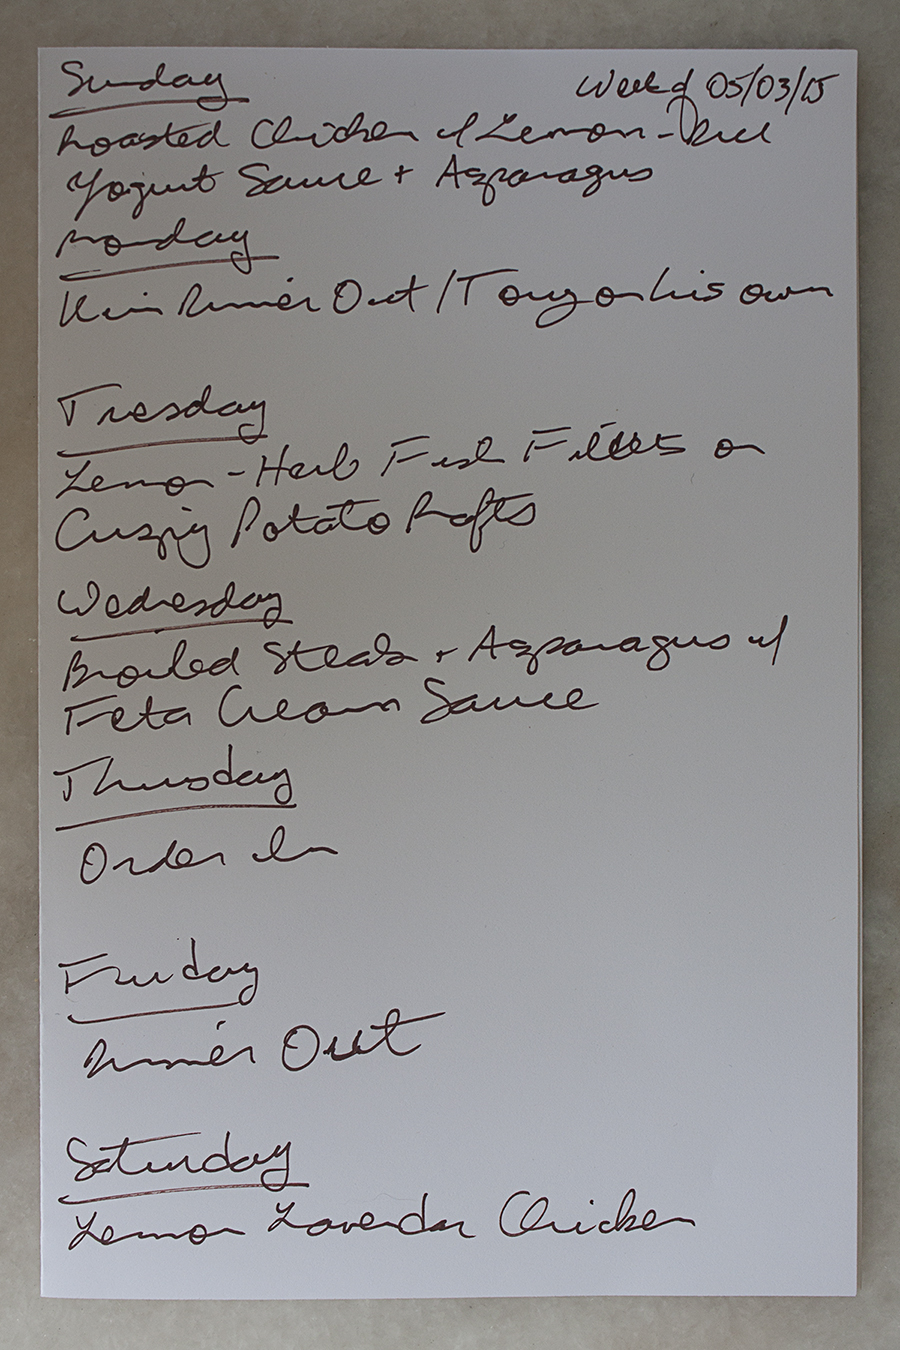 Sunday
Week of 05/03/15
Roasted Chicken w/ Lemon-Dill
Yogurt Sauce + Asparagus
Monday
Kim Dinner Out / Tony on his own
Tuesday
Lemon-Herb Fish Fillets on
Crispy Potato Rafts
Wednesday
Broiled Steak + Asparagus w/
Feta Cream Sauce
Thursday
Order In
Friday
Dinner Out
Saturday
Lemon Lavender Chicken